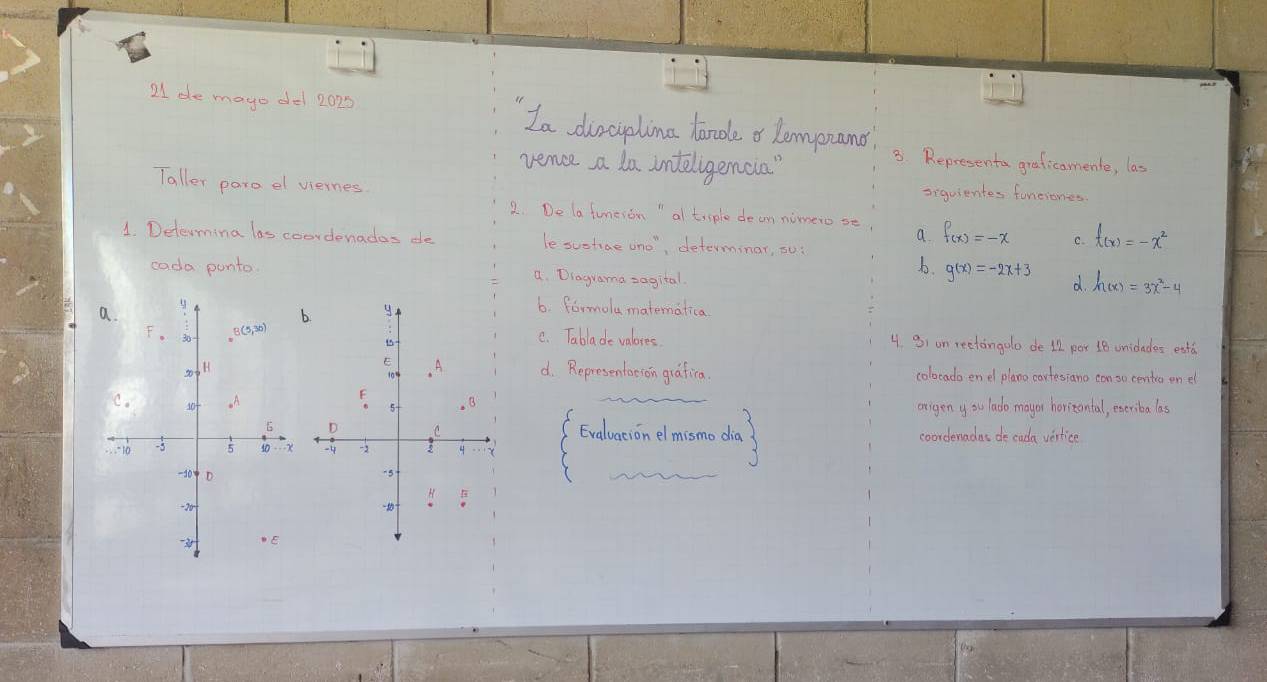 21 de mayo del 2025
Taller para el viernes.
1. Determina las coordenadas de
cada punto.
a.
y
F
30
B(5,30)
20
H
C
10
A
G
...-10
-5
5
10
...x
-10
D
-20
-30
E
b.
y
15
E
10
A
F
5
B
D
C
-4
-2
2
4
...x
-5
H
-10
"La disciplina tarde o temprano
vence a la inteligencia"
2. De la función "al triple de un número se
le sustrae uno", determinar, su:
a. Diagrama sagital.
b. Fórmula matemática.
c. Tabla de valores.
d. Representación gráfica.
{Evaluación el mismo día}
3. Representa graficamente, las
siguientes funciones.
a. f(x) = -x
c. t(x) = -x²
b. g(x) = -2x+3
d. h(x) = 3x²-4
4. Si un rectángulo de 12 por 18 unidades está
colocado en el plano cartesiano con su centro en el
origen y su lado mayor horizontal, escriba las
coordenadas de cada vértice.